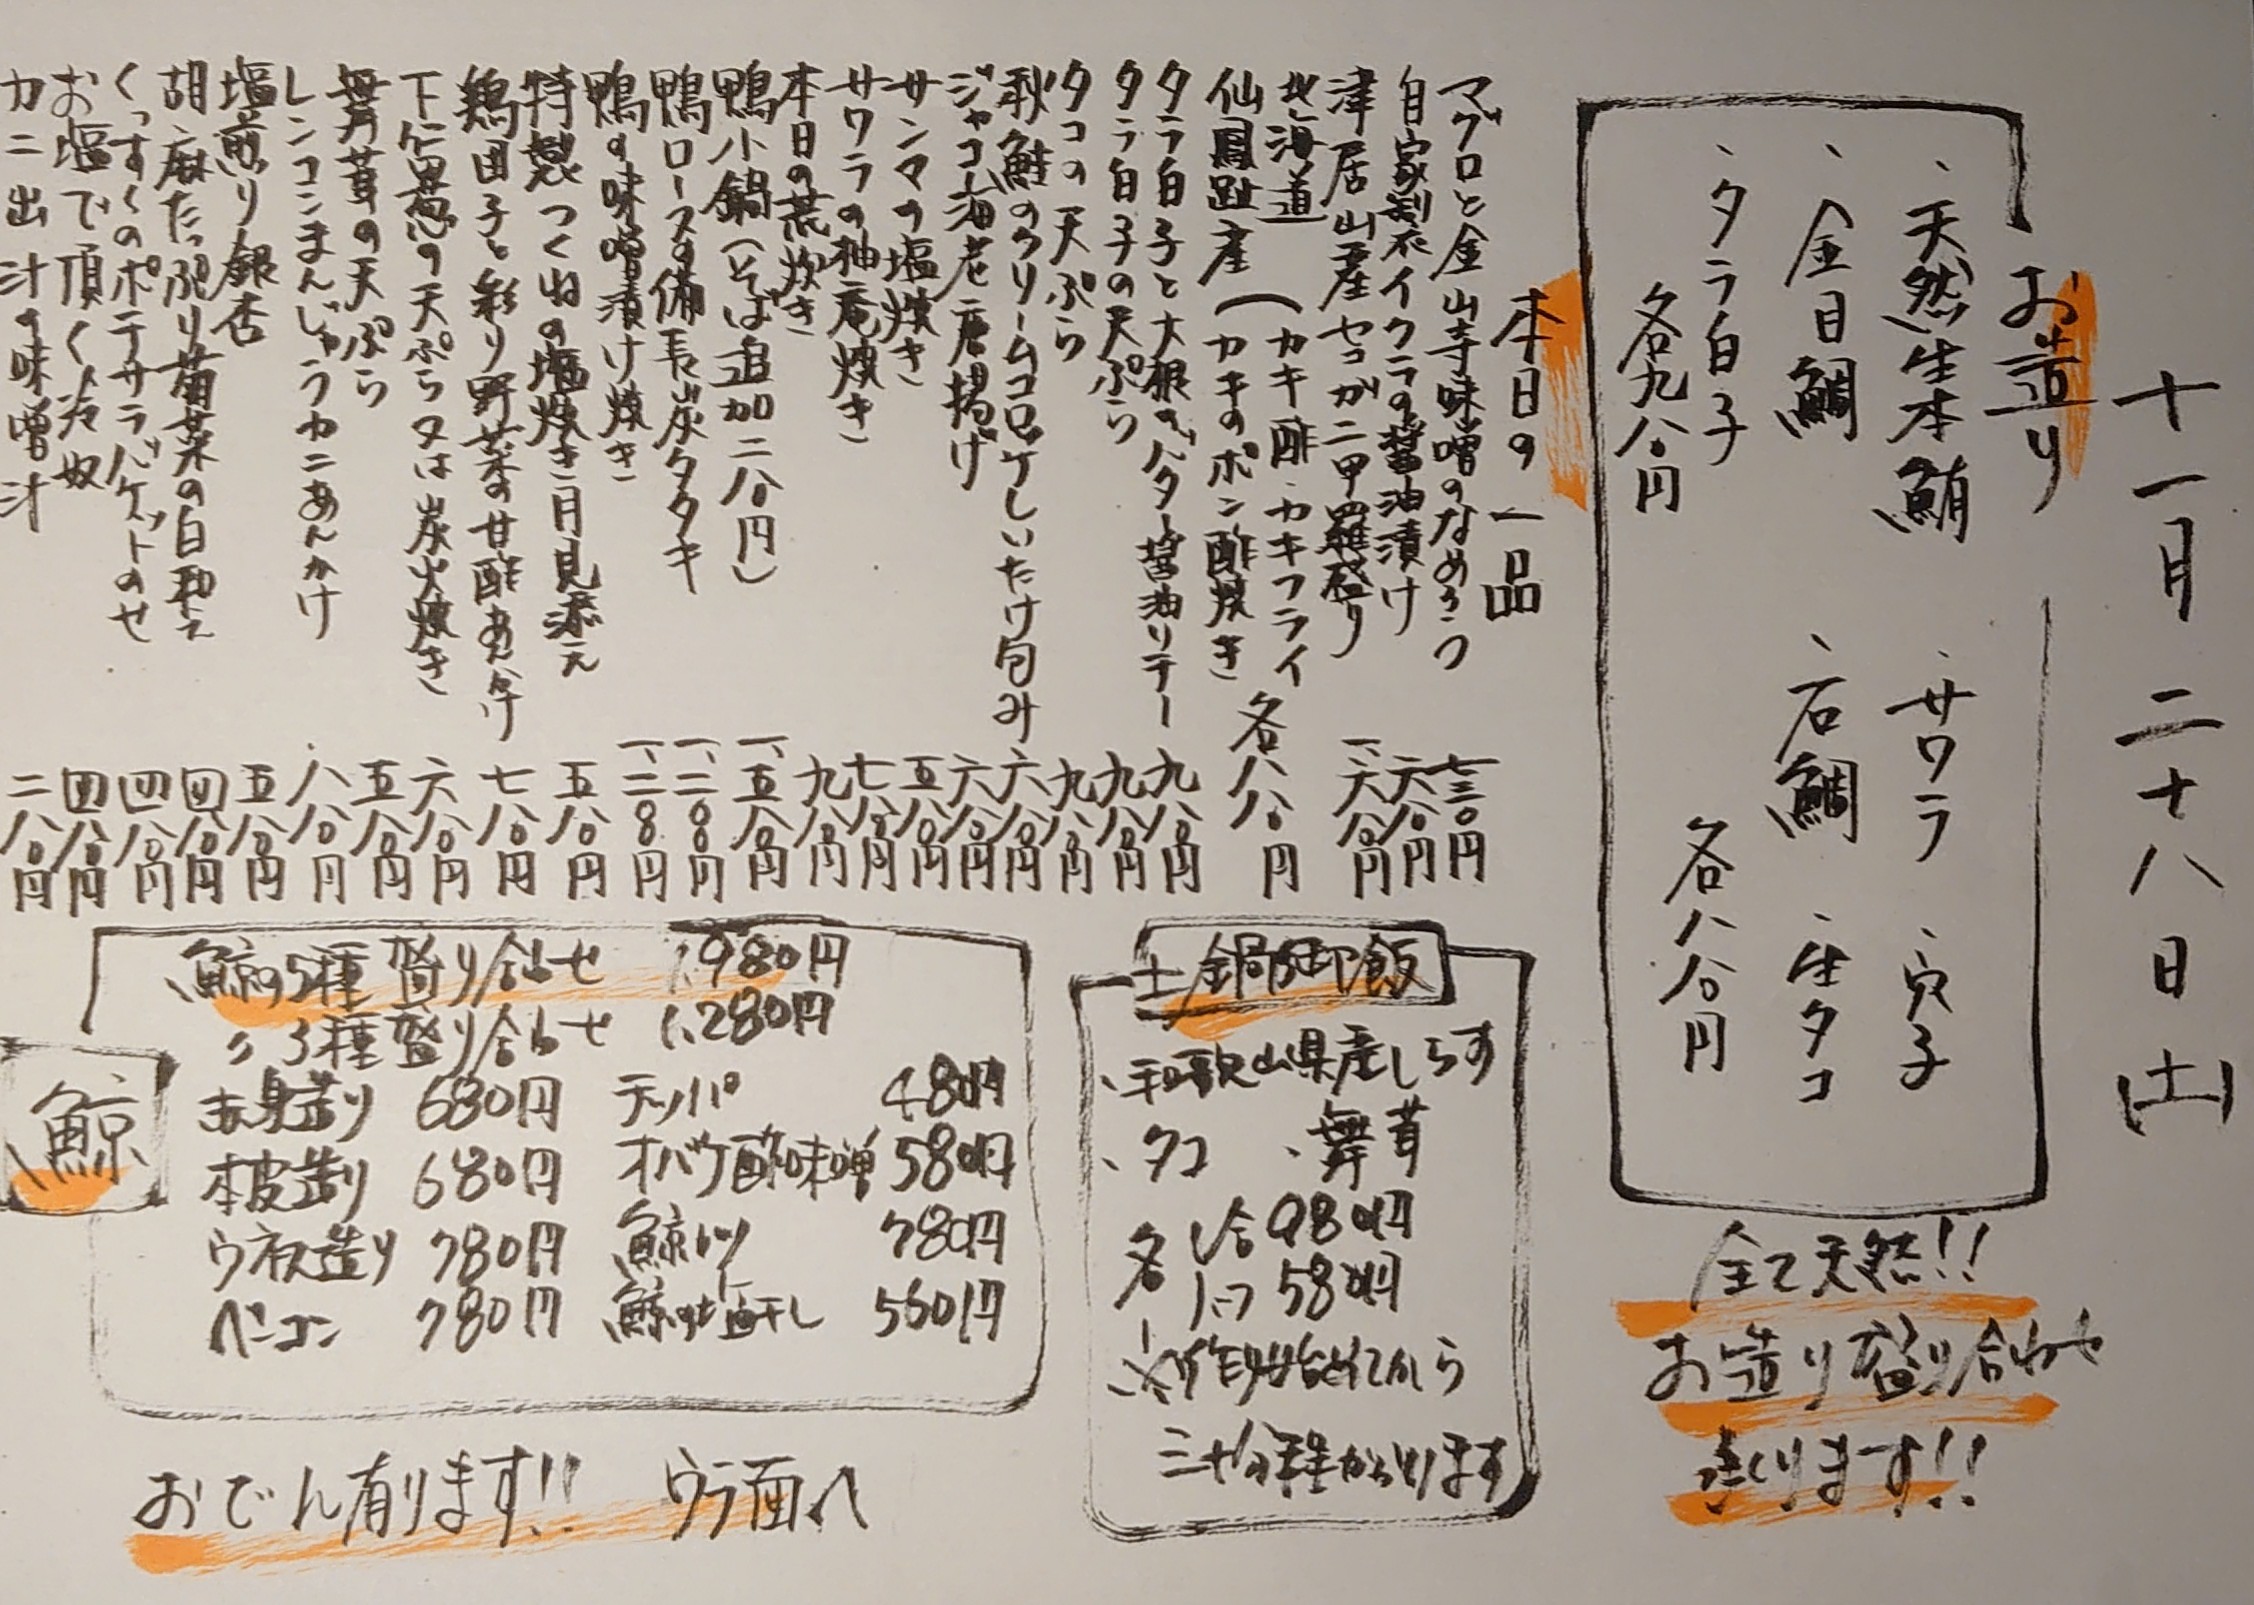 十一月二十八日(土)
お造り
、天然生本鮪 、サワラ 、穴子
、金目鯛 、石鯛 、生タコ
、タラ白子 各八八〇円
各九八〇円
全て天然!!
お造り盛り合わせ
承ります!!
本日の一品
マグロと金山寺味噌のなめろう 七三〇円
自家製イクラの醤油漬け 六八〇円
津居山産セコガニ甲羅盛り 一、六八〇円
北海道(カキ酢・カキフライ
仙鳳趾産(カキのポン酢焼き 各八八〇円
タラ白子と大根のバター醤油ソテー 九八〇円
タラ白子の天ぷら 九八〇円
タコの天ぷら 九八〇円
秋鮭のクリームコロッケしいたけ包み 六八〇円
ジャコ海老唐揚げ 六八〇円
サンマの塩焼き 五八〇円
サワラの柚庵焼き 七八〇円
本日の荒炊き 九八〇円
鴨小鍋(そば追加二八〇円) 一、五八〇円
鴨ロースの備長炭タタキ 一、二〇〇円
鴨の味噌漬け焼き 一、二八〇円
特製つくねの塩焼き 月見添え 五八〇円
鶏団子と彩り野菜の甘酢あんかけ 七八〇円
下仁田葱の天ぷら又は炭火焼き 六八〇円
舞茸の天ぷら 五八〇円
レンコンまんじゅうカニあんかけ 八八〇円
塩煎り銀杏 五八〇円
胡麻たっぷり菊菜の白和え 四八〇円
くっすくのポテサラバゲットのせ 四八〇円
お塩で頂く冷奴 四八〇円
カニ出汁の味噌汁 二八〇円
土鍋御飯
、和歌山県産しらす
、タコ 、舞茸
各 1合 980円
ハーフ 580円
※作り始めてから
三十分程かかります
鯨
鯨の5種盛り合わせ 1,980円
〃 3種盛り合わせ 1,280円
赤身造り 680円 テッパ 480円
本皮造り 680円 オバケ酢味噌 580円
ウネス造り 780円 鯨カツ 780円
ベーコン 780円 鯨の塩干し 580円
おでん有ります!! ウラ面へ